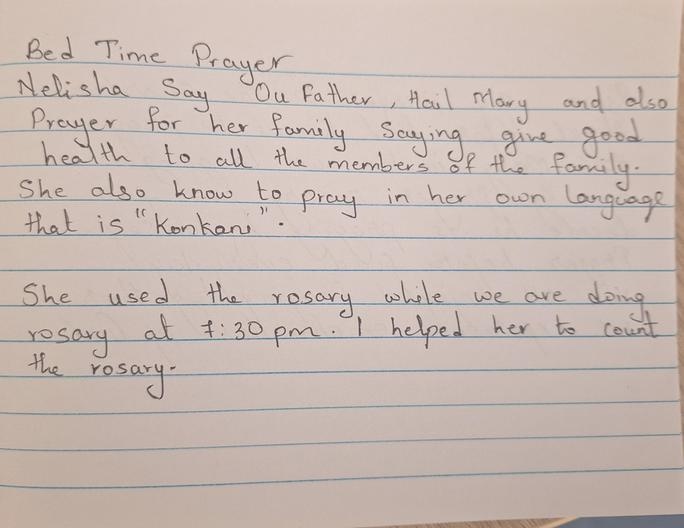 Bed Time Prayer
Nelisha Say Ou Father, Hail Mary and also
Prayer for her family saying give good
health to all the members of the family.
She also know to pray in her own language
that is "Konkani".
She used the rosary while we are doing
rosary at 7:30 pm. I helped her to count
the rosary.